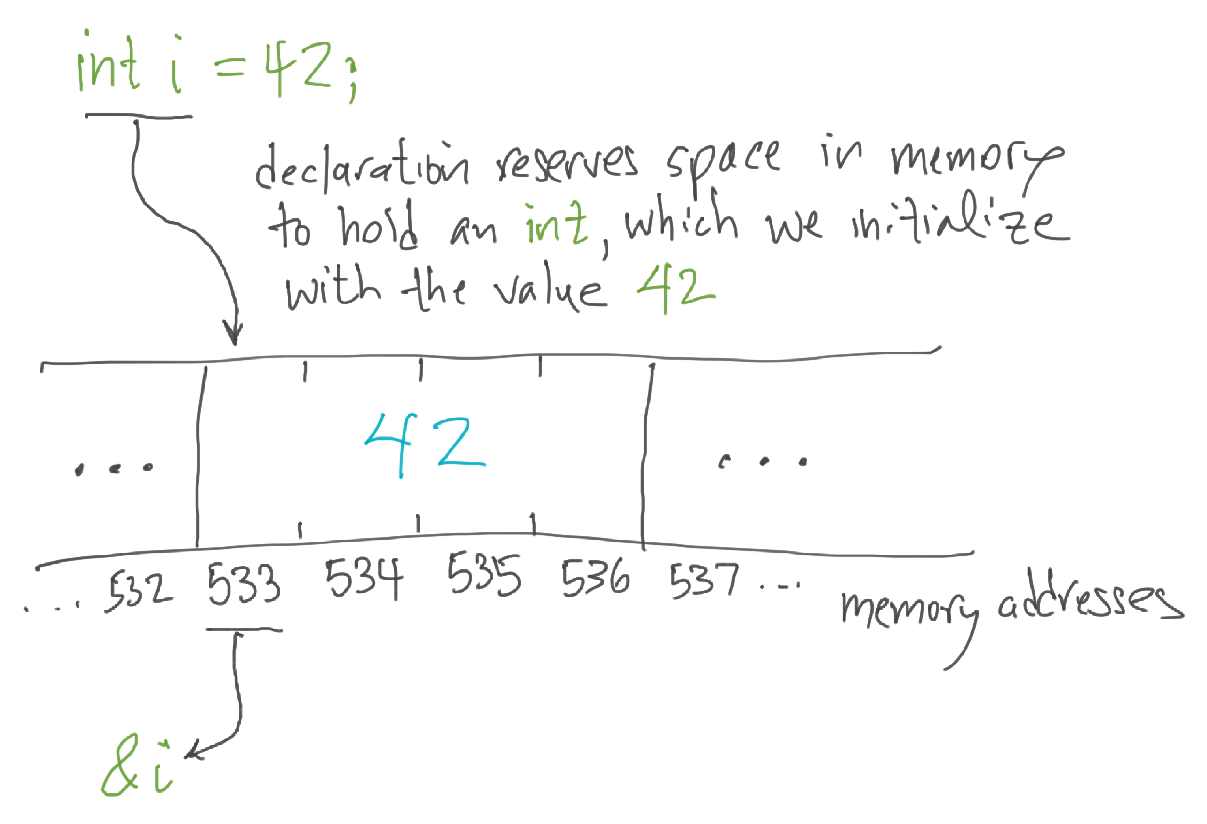 int i = 42;
declaration reserves space in memory
to hold an int, which we initialize
with the value 42
... 42 ...
... 532 533 534 535 536 537 ...
memory addresses
&i